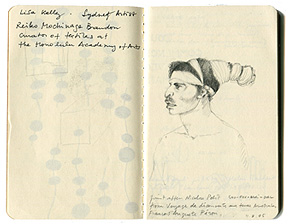 Lisa Kelly. Sydney Artist
Reiko Mochinaga Brandon
curator of textiles at
the Honolulu Academy of Arts
from Voyage de découvertes aux terres australes
François Auguste Péron.